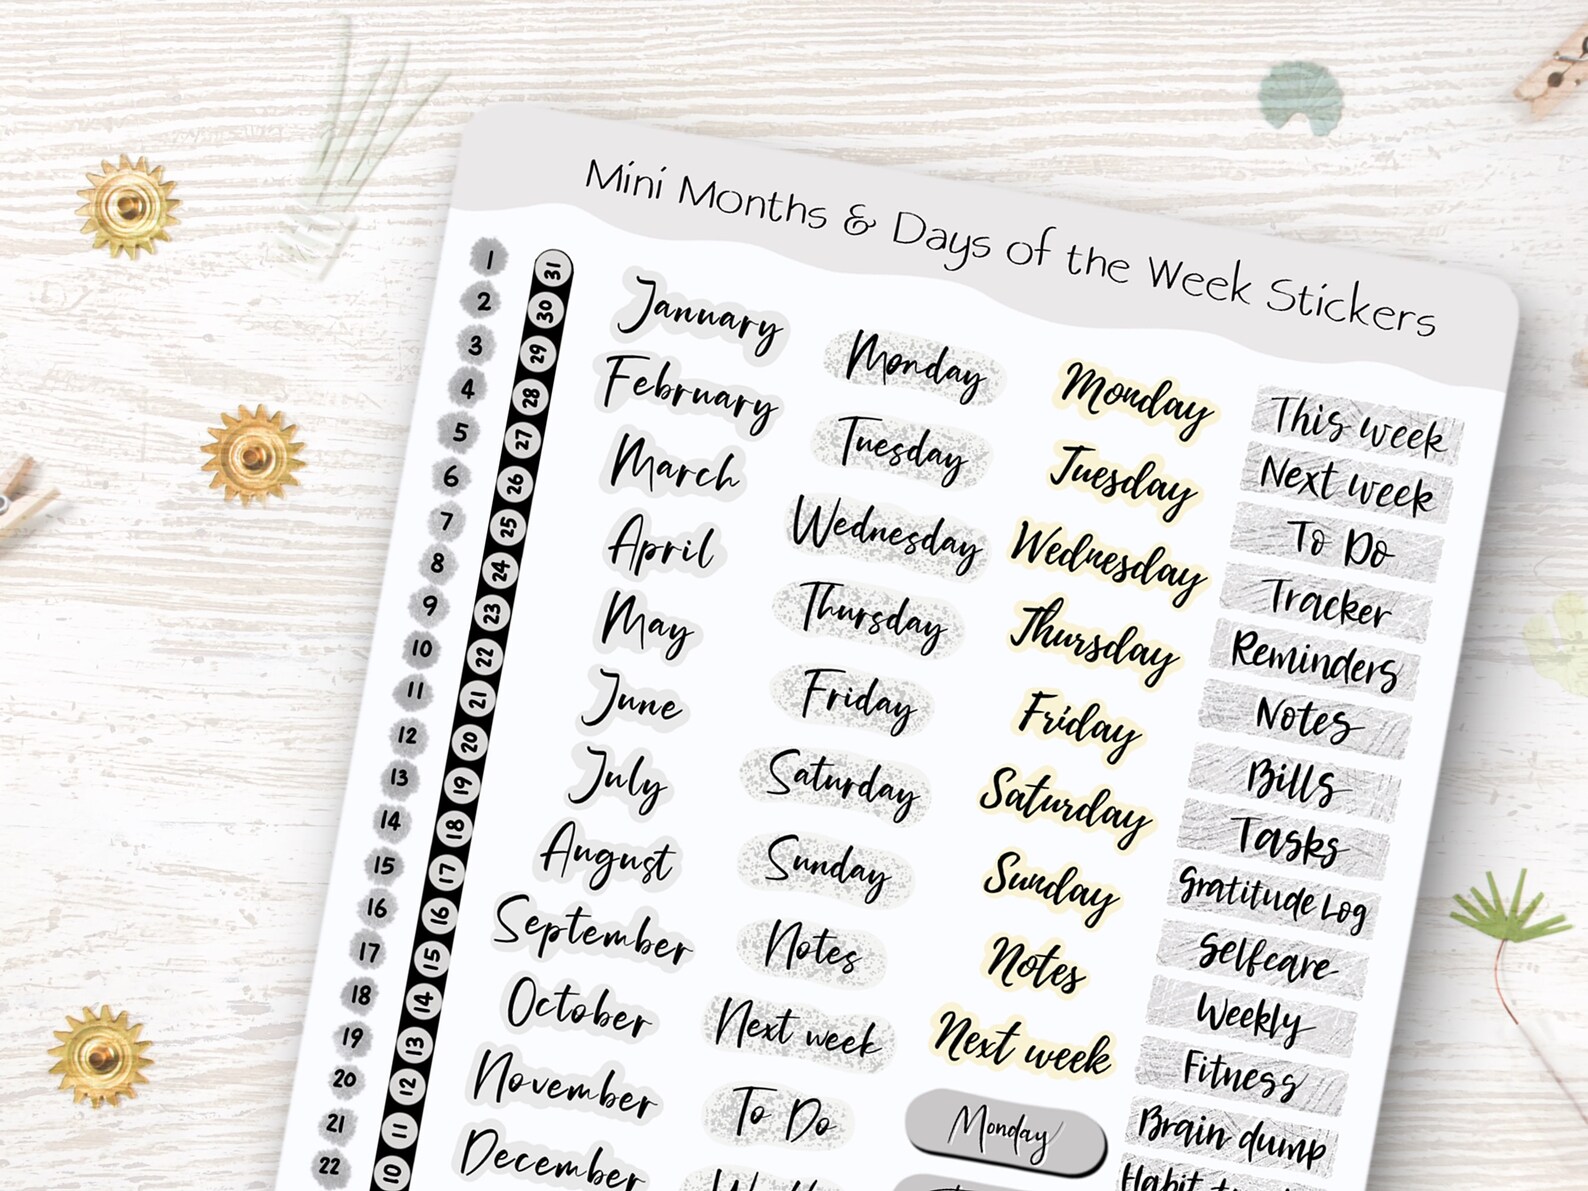 Mini Months & Days of the Week Stickers
1
2
3
4
5
6
7
8
9
10
11
12
13
14
15
16
17
18
19
20
21
22
31
30
29
28
27
26
25
24
23
22
21
20
19
18
17
16
15
14
13
12
11
10
January
February
March
April
May
June
July
August
September
October
November
December
Monday
Tuesday
Wednesday
Thursday
Friday
Saturday
Sunday
Notes
Next week
To Do
Monday
Tuesday
Wednesday
Thursday
Friday
Saturday
Sunday
Notes
Next week
Monday
This week
Next week
To Do
Tracker
Reminders
Notes
Bills
Tasks
Gratitude Log
Selfcare
Weekly
Fitness
Brain dump
Habit